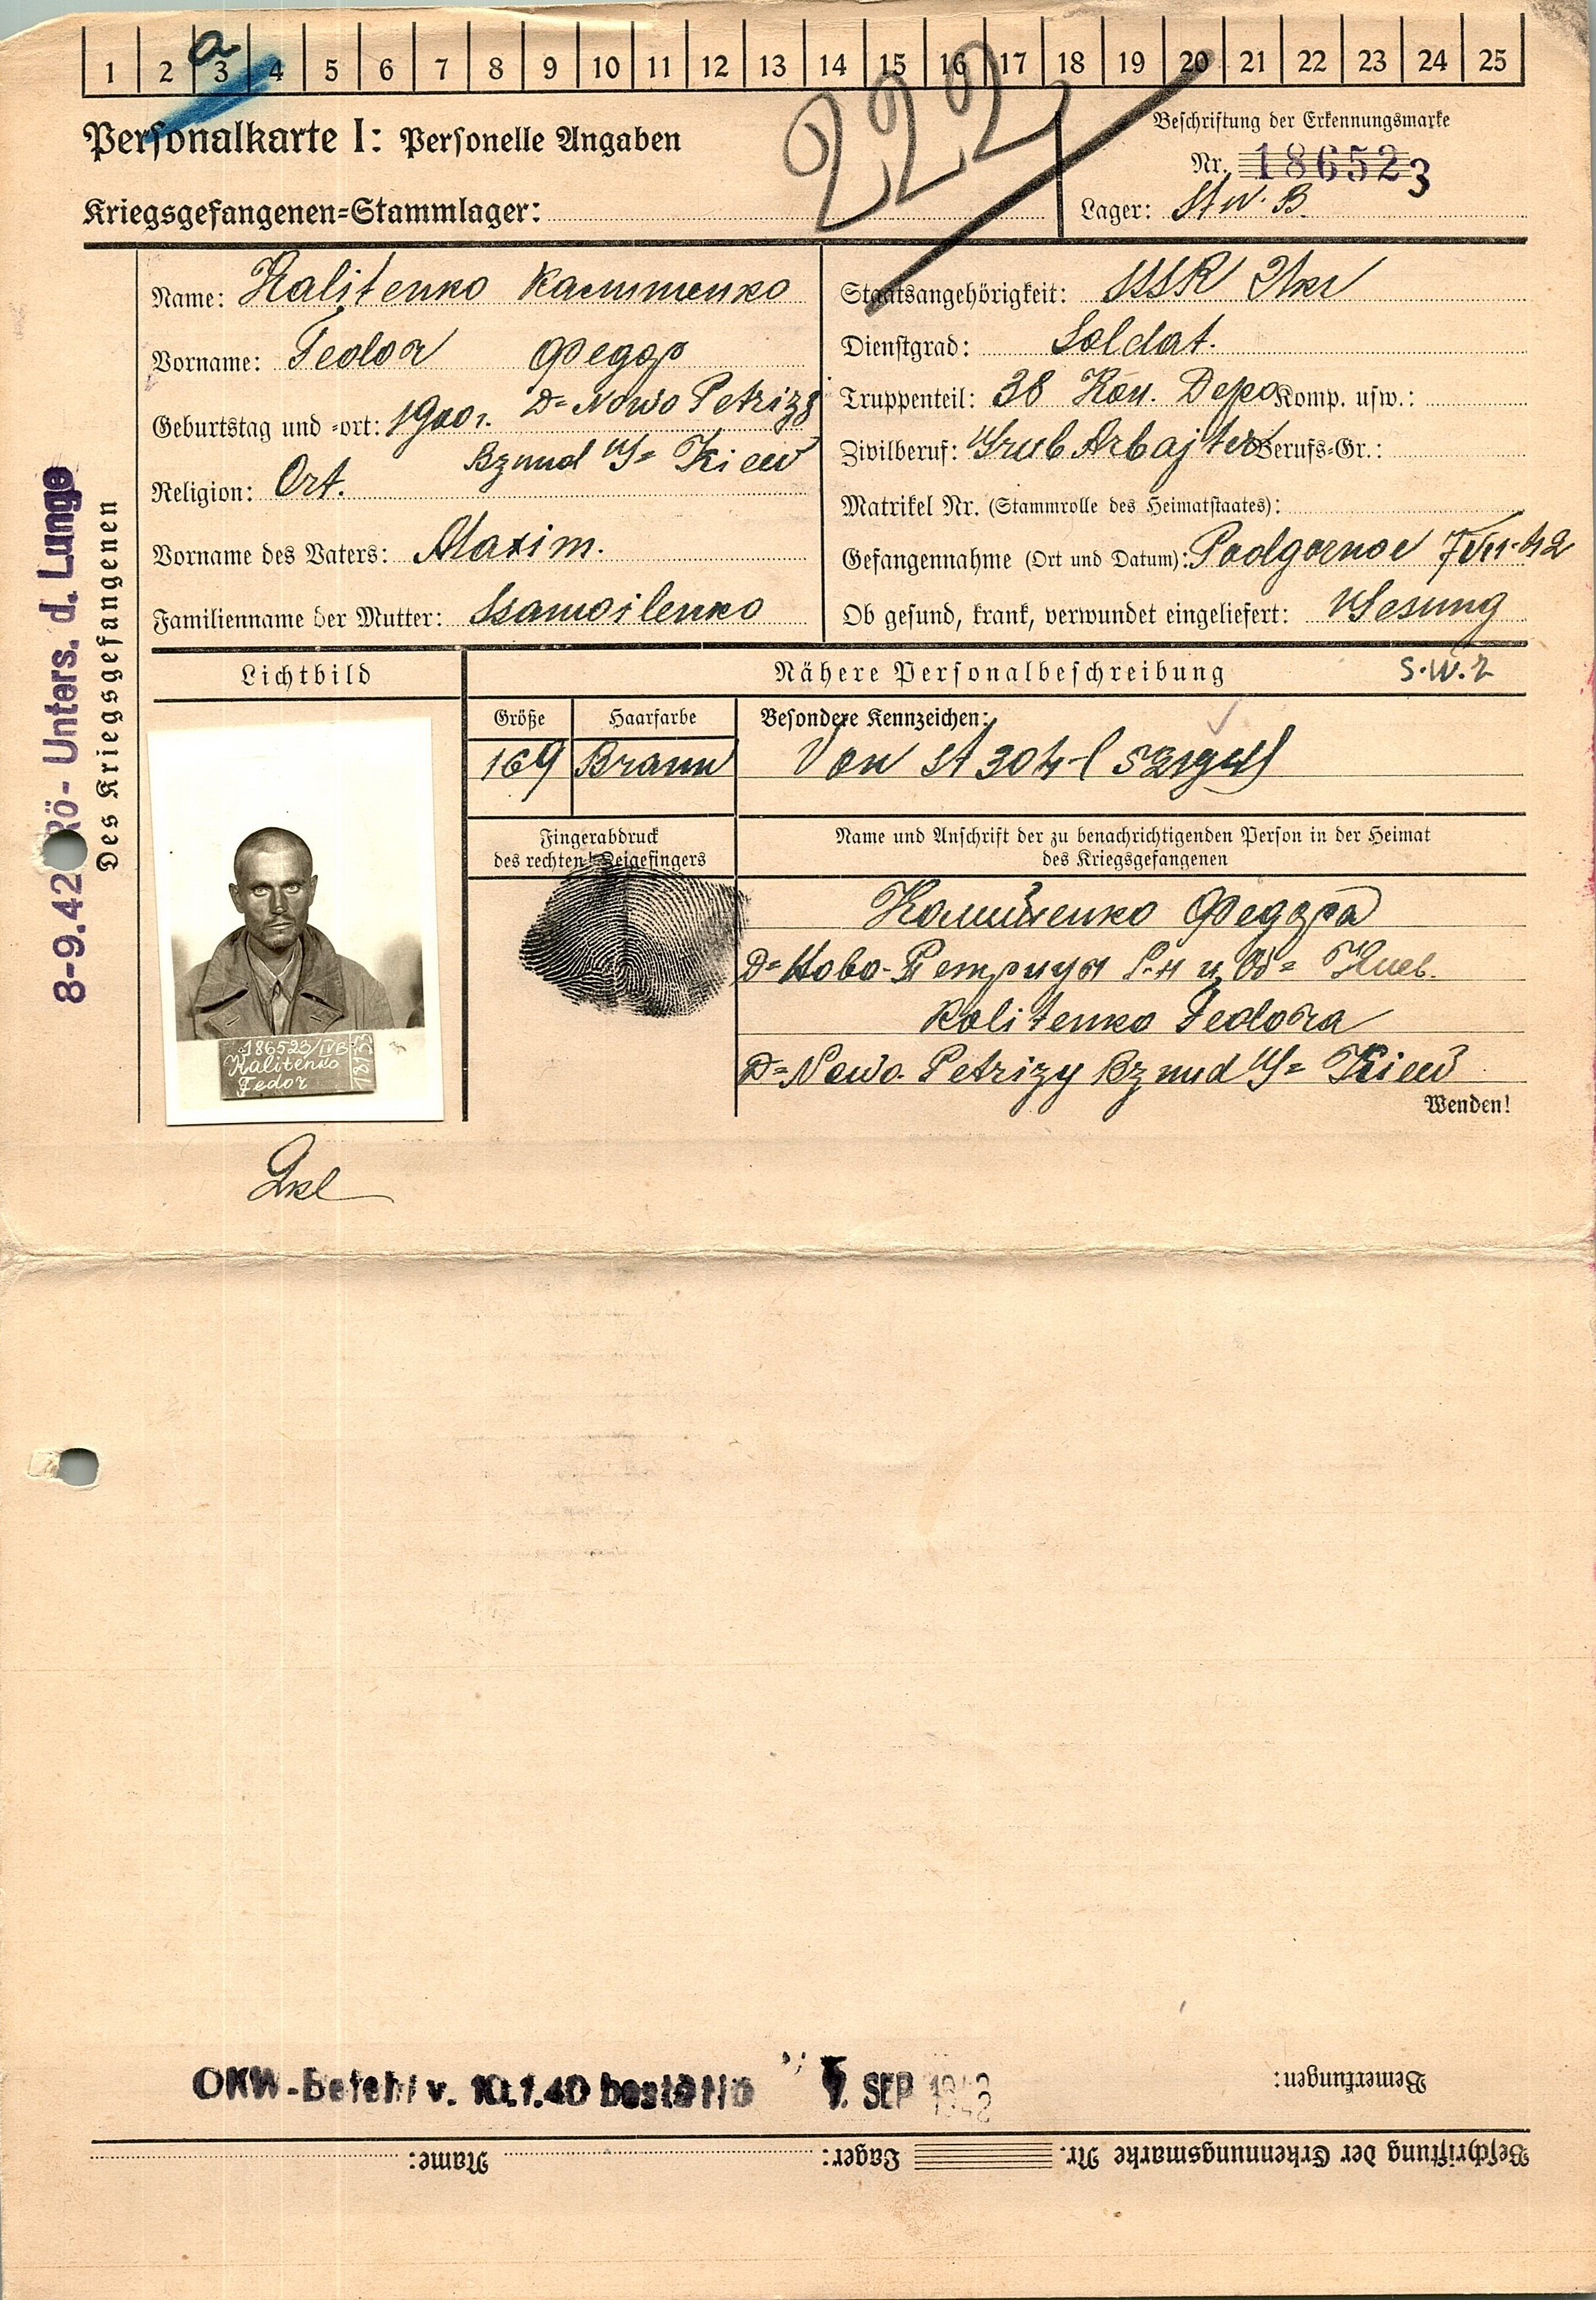 1 2 3 4 5 6 7 8 9 10 11 12 13 14 15 16 17 18 19 20 21 22 23 24 25
a
222
Personalkarte I: Personelle Angaben
Beschriftung der Erkennungsmarke
Nr. 186523
Kriegsgefangenen=Stammlager:
Lager: IV. B.
Des Kriegsgefangenen
8-9.42 Rö- Unters. d. Lunge
Name: Kalitenko Калитенко
Vorname: Fedor Федор
Geburtstag und =ort: 1900. D= Nowo Petrizy
Bz und G= Kiew
Religion: Ort.
Vorname des Vaters: Maxim.
Familienname der Mutter: Ssamoilenko
Staatsangehörigkeit: SSSR Ukr
Dienstgrad: Soldat.
Truppenteil: 38 Kon. Depo Komp. usw.:
Zivilberuf: Grub Arbajter Berufs=Gr.:
Matrikel Nr. (Stammrolle des Heimatstaates):
Gefangennahme (Ort und Datum): Podgornoe 42
Ob gesund, krank, verwundet eingeliefert: Gesung
Lichtbild
Nähere Personalbeschreibung
S.W.2
Größe
Haarfarbe
Besondere Kennzeichen:
169
Braun
Von St 304
Fingerabdruck
des rechten Zeigefingers
Name und Anschrift der zu benachrichtigenden Person in der Heimat
des Kriegsgefangenen
Калитенко Федора
D= Ново-Петрицы Р-н и Об= Киев.
Kalitenko Fedora
D= Nowo-Petrizy Bz und G= Kiew
Wenden!
186523/IVB
Kalitenko
Fedor
OKW-Befehl v. 10.1.40 bestätig
SEP 1942
Bemerkungen:
Beschriftung der Erkennungsmarke Nr. Lager: Name: